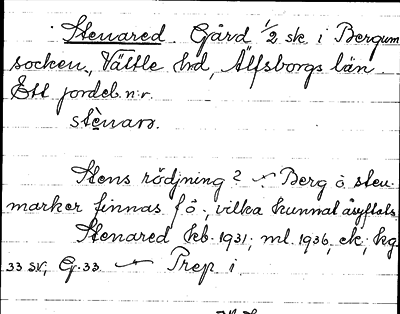 Stenared Gård 1/2 sk i Bergum
socken, Vättle hd, Älfsborgs län.
Ett jordeb.nr.
stènarə.
Stens rödjning? ⁓ Berg o. sten-
marker finnas f ö., vilka kunnat åsyftats
Stenared kb. 1931, ml. 1936, ek., kg.
33 sv, G.33 ⁓ Prep i.